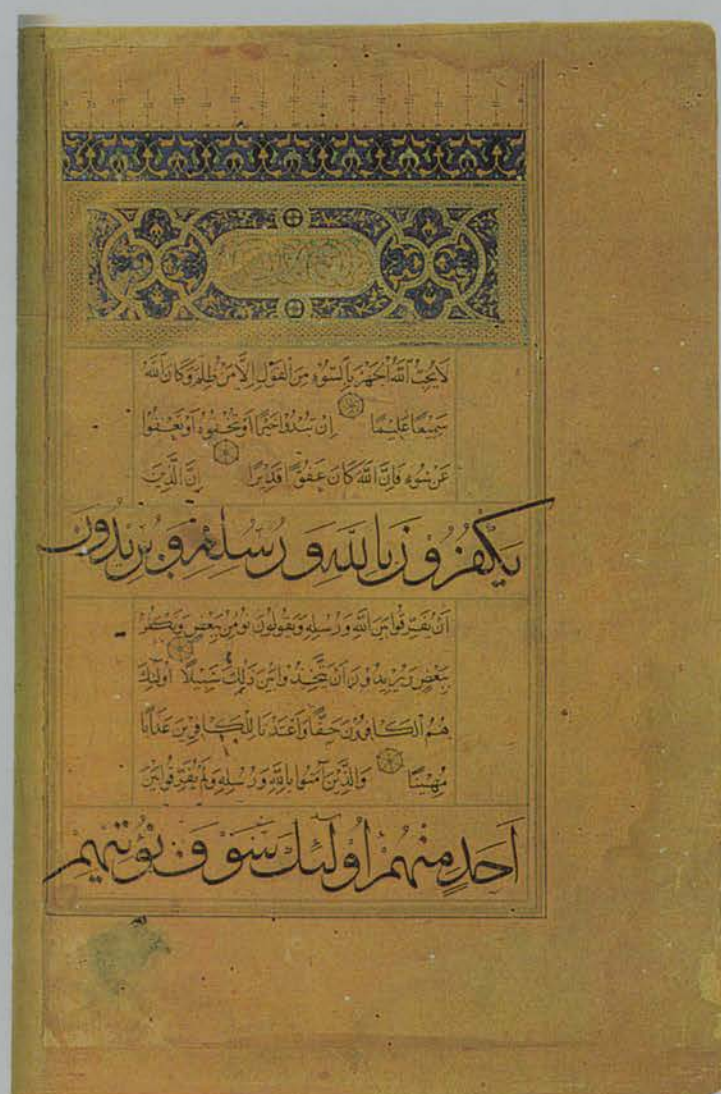 لَا يُحِبُّ اللَّهُ الْجَهْرَ بِالسُّوءِ مِنَ الْقَوْلِ إِلَّا مَنْ ظُلِمَ وَكَانَ اللَّهُ
سَمِيعًا عَلِيمًا إِنْ تُبْدُوا خَيْرًا أَوْ تُخْفُوهُ أَوْ تَعْفُوا
عَنْ سُوءٍ فَإِنَّ اللَّهَ كَانَ عَفُوًّا قَدِيرًا إِنَّ الَّذِينَ
يَكْفُرُونَ بِاللَّهِ وَرُسُلِهِ وَيُرِيدُونَ
أَنْ يُفَرِّقُوا بَيْنَ اللَّهِ وَرُسُلِهِ وَيَقُولُونَ نُؤْمِنُ بِبَعْضٍ وَنَكْفُرُ
بِبَعْضٍ وَيُرِيدُونَ أَنْ يَتَّخِذُوا بَيْنَ ذَلِكَ سَبِيلًا أُولَئِكَ
هُمُ الْكَافِرُونَ حَقًّا وَأَعْتَدْنَا لِلْكَافِرِينَ عَذَابًا
مُهِينًا وَالَّذِينَ آمَنُوا بِاللَّهِ وَرُسُلِهِ وَلَمْ يُفَرِّقُوا بَيْنَ
أَحَدٍ مِنْهُمْ أُولَئِكَ سَوْفَ نُؤْتِيهِمْ